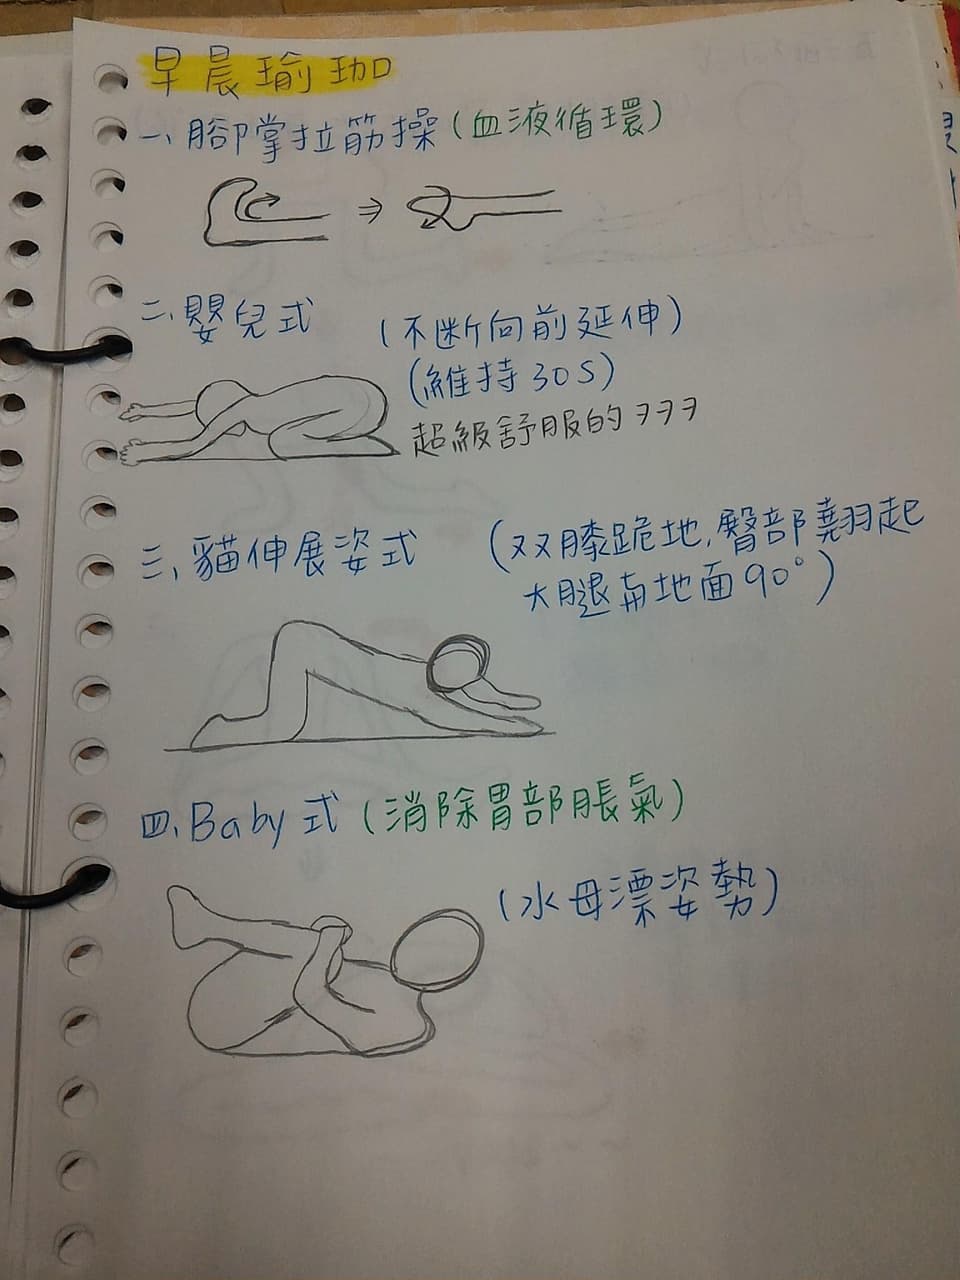 早晨瑜珈
一、腳掌拉筋操(血液循環)
二、嬰兒式
(不断向前延伸)
(維持30S)
超級舒服的ヲヲヲ
三、貓伸展姿式
(双膝跪地,臀部翹起
大腿與地面90°)
四、Baby式(消除胃部脹氣)
(水母漂姿勢)